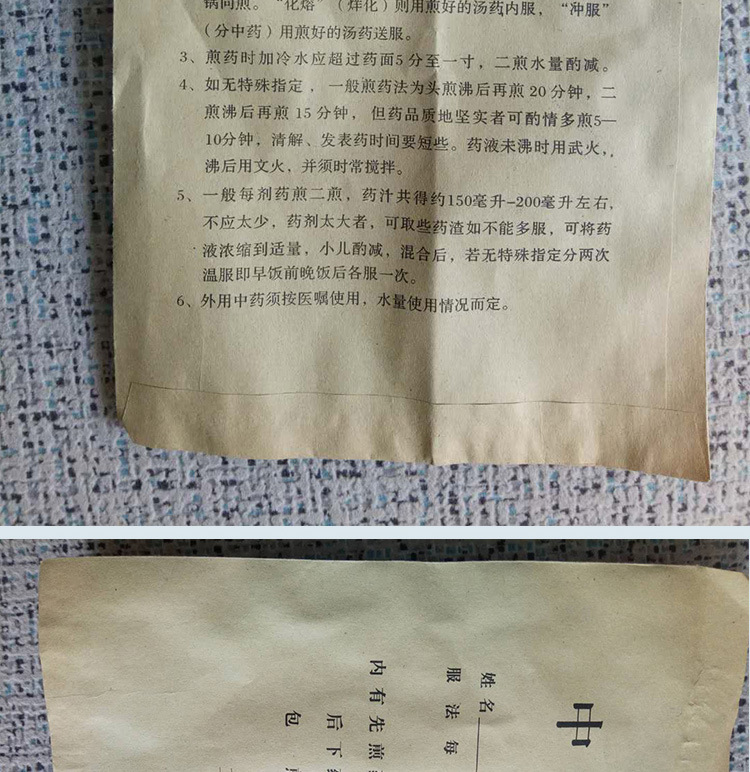 锅同煎。“化熔”（烊化）则用煎好的汤药内服，“冲服”
（分中药）用煎好的汤药送服。
3、煎药时加冷水应超过药面5分至一寸，二煎水量酌减。
4、如无特殊指定，一般煎药法为头煎沸后再煎20分钟，二
煎沸后再煎15分钟，但药品质地坚实者可酌情多煎5—
10分钟，清解、发表药时间要短些。药液未沸时用武火，，
沸后用文火，并须时常搅拌。
5、一般每剂药煎二煎，药汁共得约150毫升-200毫升左右，
不应太少，药剂太大者，可取些药渣如不能多服，可将药
液浓缩到适量，小儿酌减，混合后，若无特殊指定分两次
温服即早饭前晚饭后各服一次。
6、外用中药须按医嘱使用，水量使用情况而定。
中
姓名
服法每
内有先煎
后下
包